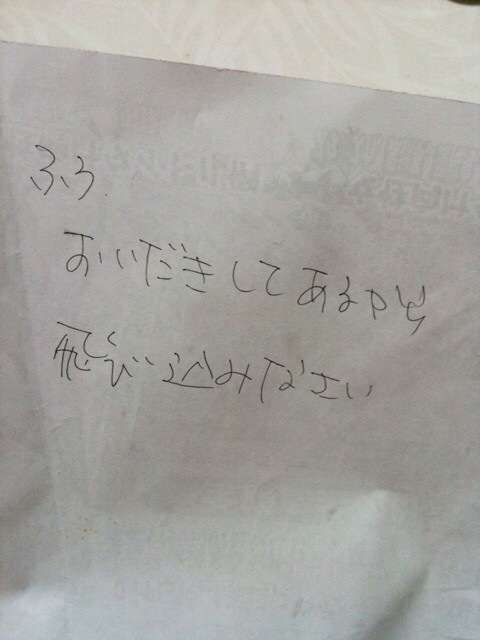 ふろ.
おいだきしてあるから
飛び込みなさい